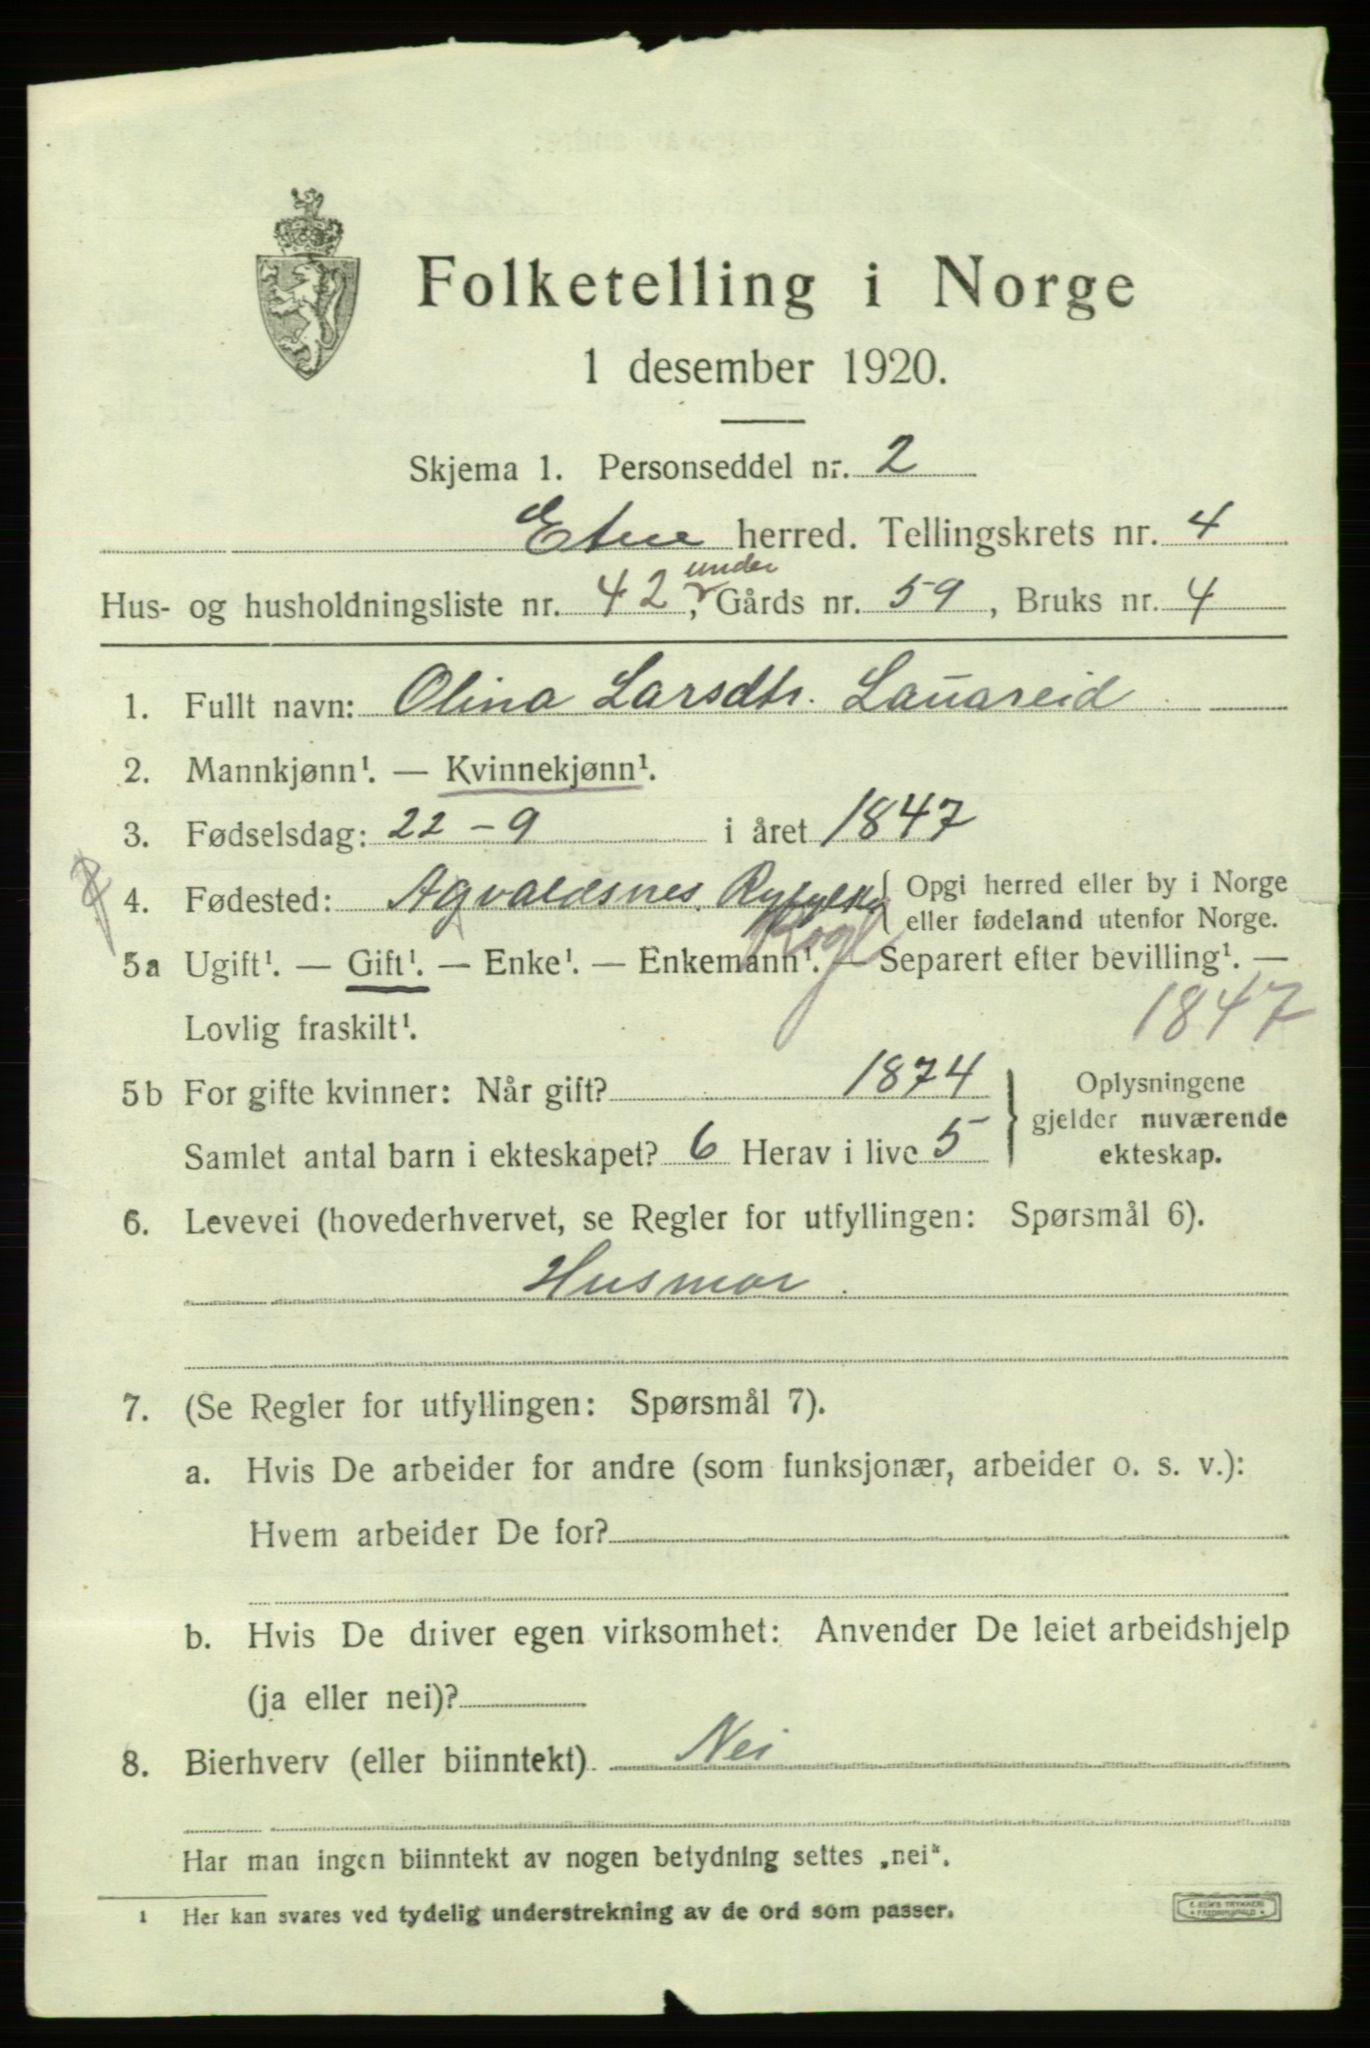 Folketelling i Norge
1 desember 1920.
Skjema 1. Personseddel nr. 2
Etne herred. Tellingskrets nr. 4
under
Hus- og husholdningsliste nr. 42, Gårds nr. 59, Bruks nr. 4
1. Fullt navn: Olina Larsdtr. Lauareid
2. Mannkjønn¹. — Kvinnekjønn¹.
3. Fødselsdag: 22-9 i året 1847
4. Fødested: Agvaldsnes. Ryfylke { Opgi herred eller by i Norge
eller fødeland utenfor Norge.
Rogl
5a Ugift¹. — Gift¹. — Enke¹. — Enkemann¹. — Separert efter bevilling¹. —
Lovlig fraskilt¹. 1847
5b For gifte kvinner: Når gift? 1874 } Oplysningene
gjelder nuværende
Samlet antal barn i ekteskapet? 6 Herav i live 5 ekteskap.
6. Levevei (hovederhvervet, se Regler for utfyllingen: Spørsmål 6).
Husmor.
7. (Se Regler for utfyllingen: Spørsmål 7).
a. Hvis De arbeider for andre (som funksjonær, arbeider o. s. v.):
Hvem arbeider De for?
b. Hvis De driver egen virksomhet: Anvender De leiet arbeidshjelp
(ja eller nei)?
8. Bierhverv (eller biinntekt) Nei
Har man ingen biinntekt av nogen betydning settes „nei“.
¹ Her kan svares ved tydelig understrekning av de ord som passer.